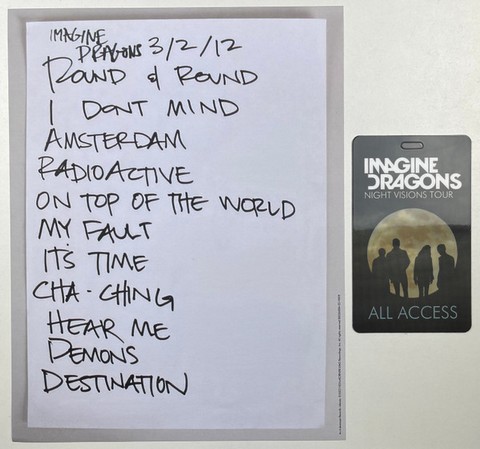 IMAGINE
DRAGONS 3/2/12
ROUND & ROUND
I DONT MIND
AMSTERDAM
RADIOACTIVE
ON TOP OF THE WORLD
MY FAULT
IT'S TIME
CHA-CHING
HEAR ME
DEMONS
DESTINATION
IMAGINE
DRAGONS
NIGHT VISIONS TOUR
ALL ACCESS